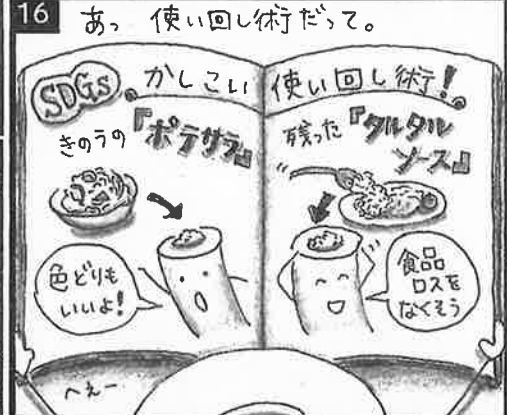 16
あっ 使い回し術だって。
SDGs かしこい 使い回し術!
きのうの
『ポテサラ』
残った『タルタル
ソース』
色どりも
いいよ!
食品
ロスを
なくそう
へぇー